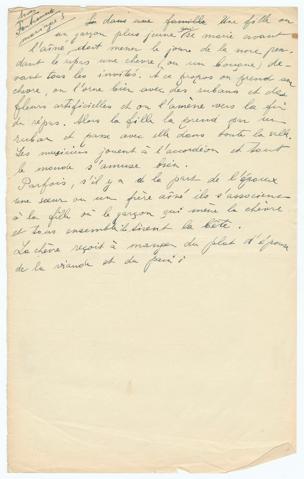 dans une famille Une fille ou
un garçon plus jeune se marie avant
l'aîné, doit mener le jour de la noce, pen-
dant le repas une chèvre (ou un bouquet) de-
vant tous les invités. A ce propos on prend une
chèvre, on l'orne bien avec des rubans et des
fleurs artificielles et on l'amène vers la fin
du repas. Alors la fille la prend par un
ruban et passe avec elle dans toute la salle.
Les musiciens jouent à l'accordéon et tout
le monde s'amuse bien.
Parfois, s'il y a de la part de l'époux
une sœur ou un frère aîné ils s'associent
à la fille où le garçon qui mène la chèvre
et tous ensemble tirent la bête.
La chèvre reçoit à manger du plat d'épouse
de la viande et du pain.